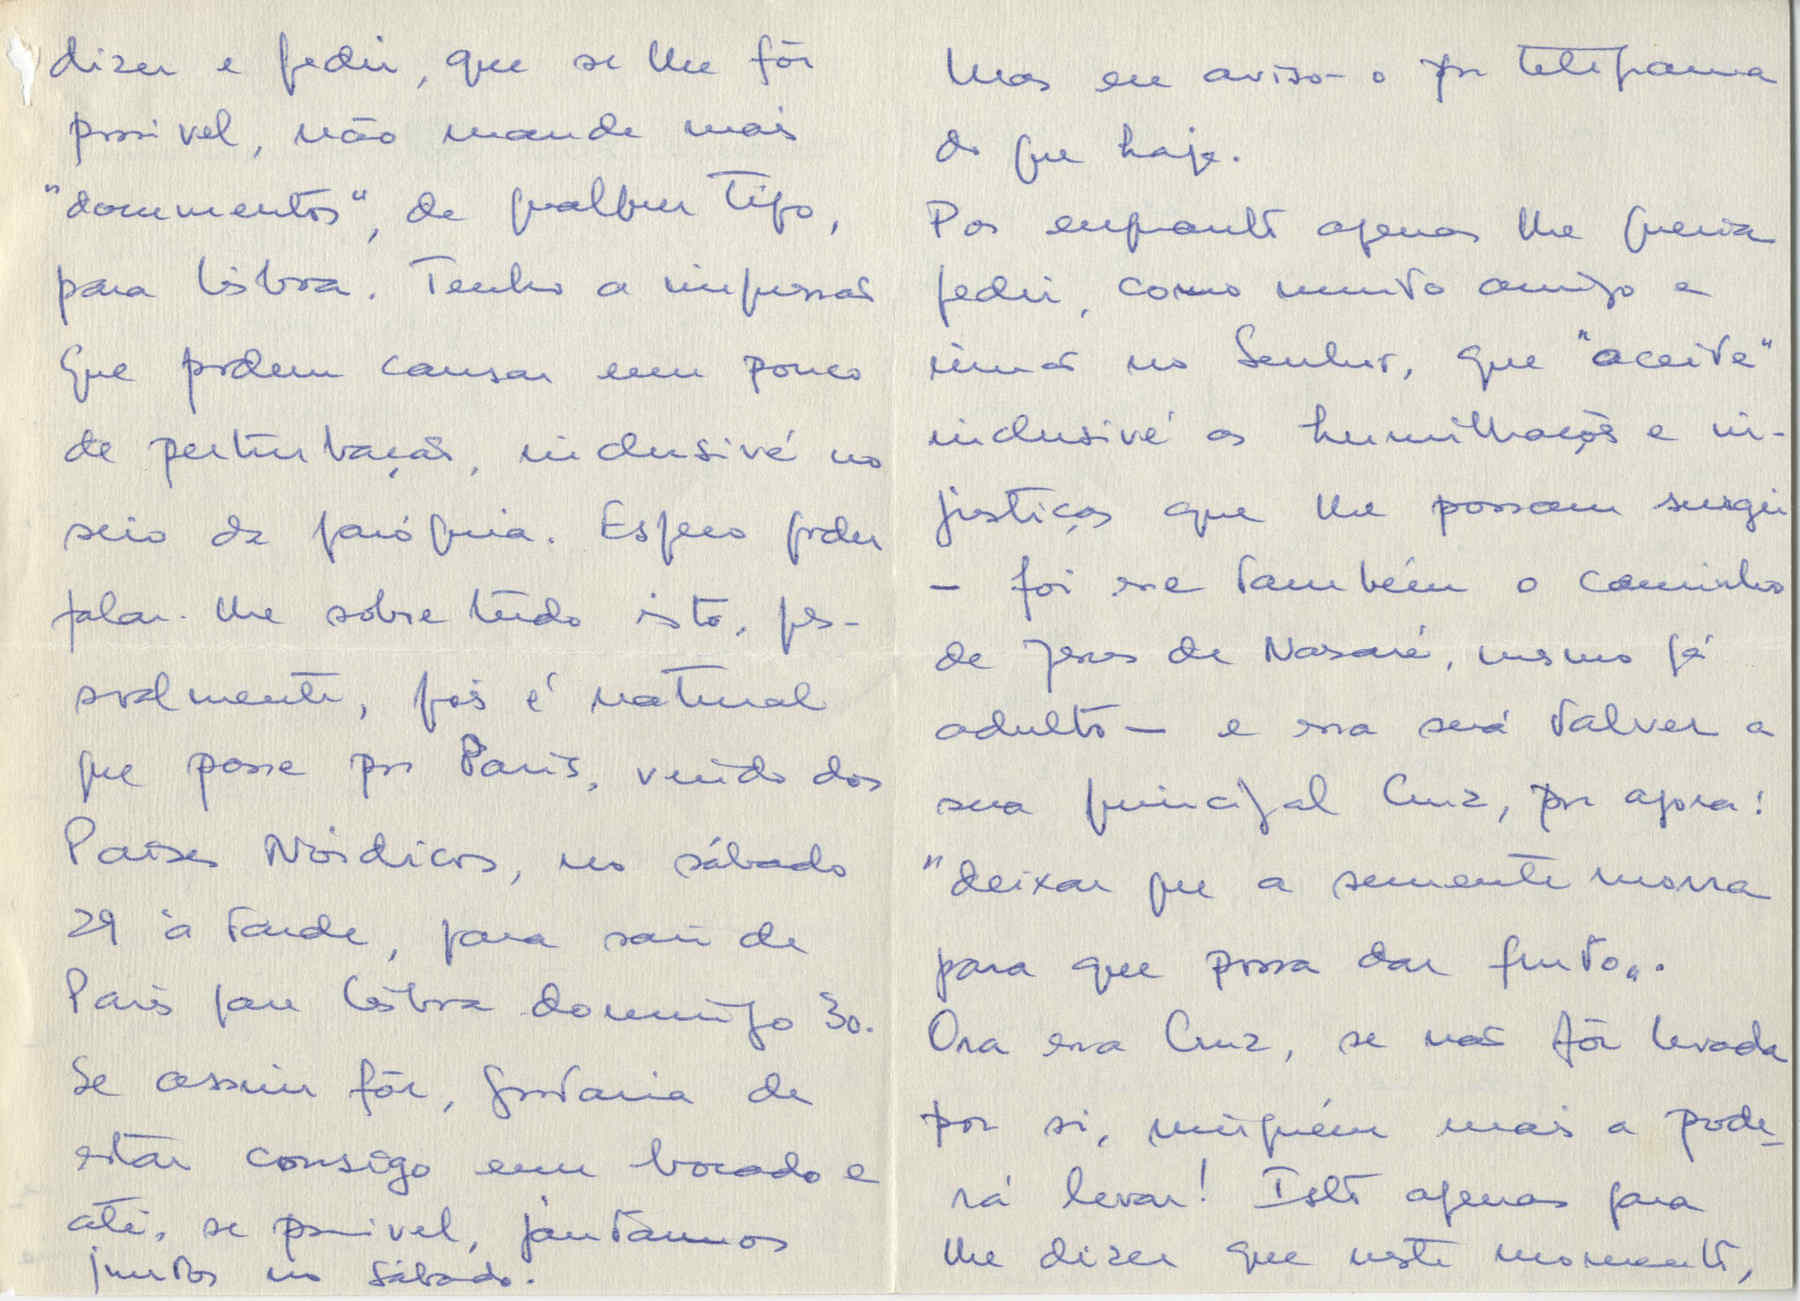 dizer e pedir, que se lhe fôr
possivel, não mande mais
"documentos", de qualquer tipo,
para Lisboa. Tenho a impressão
que podem causar um pouco
de perturbação, inclusivé no
seio da paróquia. Espero poder
falar-lhe sobre tudo isto, pes-
soalmente, pois é natural
que passe por Paris, vindo dos
Países Nórdicos, no sábado
29 à tarde, para sair de
Paris para Lisboa domingo 30.
Se assim fôr, gostaria de
estar consigo um bocado e
até, se possivel, jantarmos
juntos no sábado.
Mas eu aviso-o por telegrama
do que haja.
Por enquanto apenas lhe queria
pedir, como muito amigo e
irmão no Senhor, que "aceite"
inclusivé as humilhações e in-
justiças que lhe possam surgir
— foi esse também o caminho
de Jesus de Nazaré, mesmo já
adulto — e essa será talvez a
sua principal Cruz, por agora:
"deixar que a semente morra
para que possa dar fruto".
Ora essa Cruz, se não fôr levada
por si, ninguém mais a pode-
rá levar! Isto apenas para
lhe dizer que neste momento,